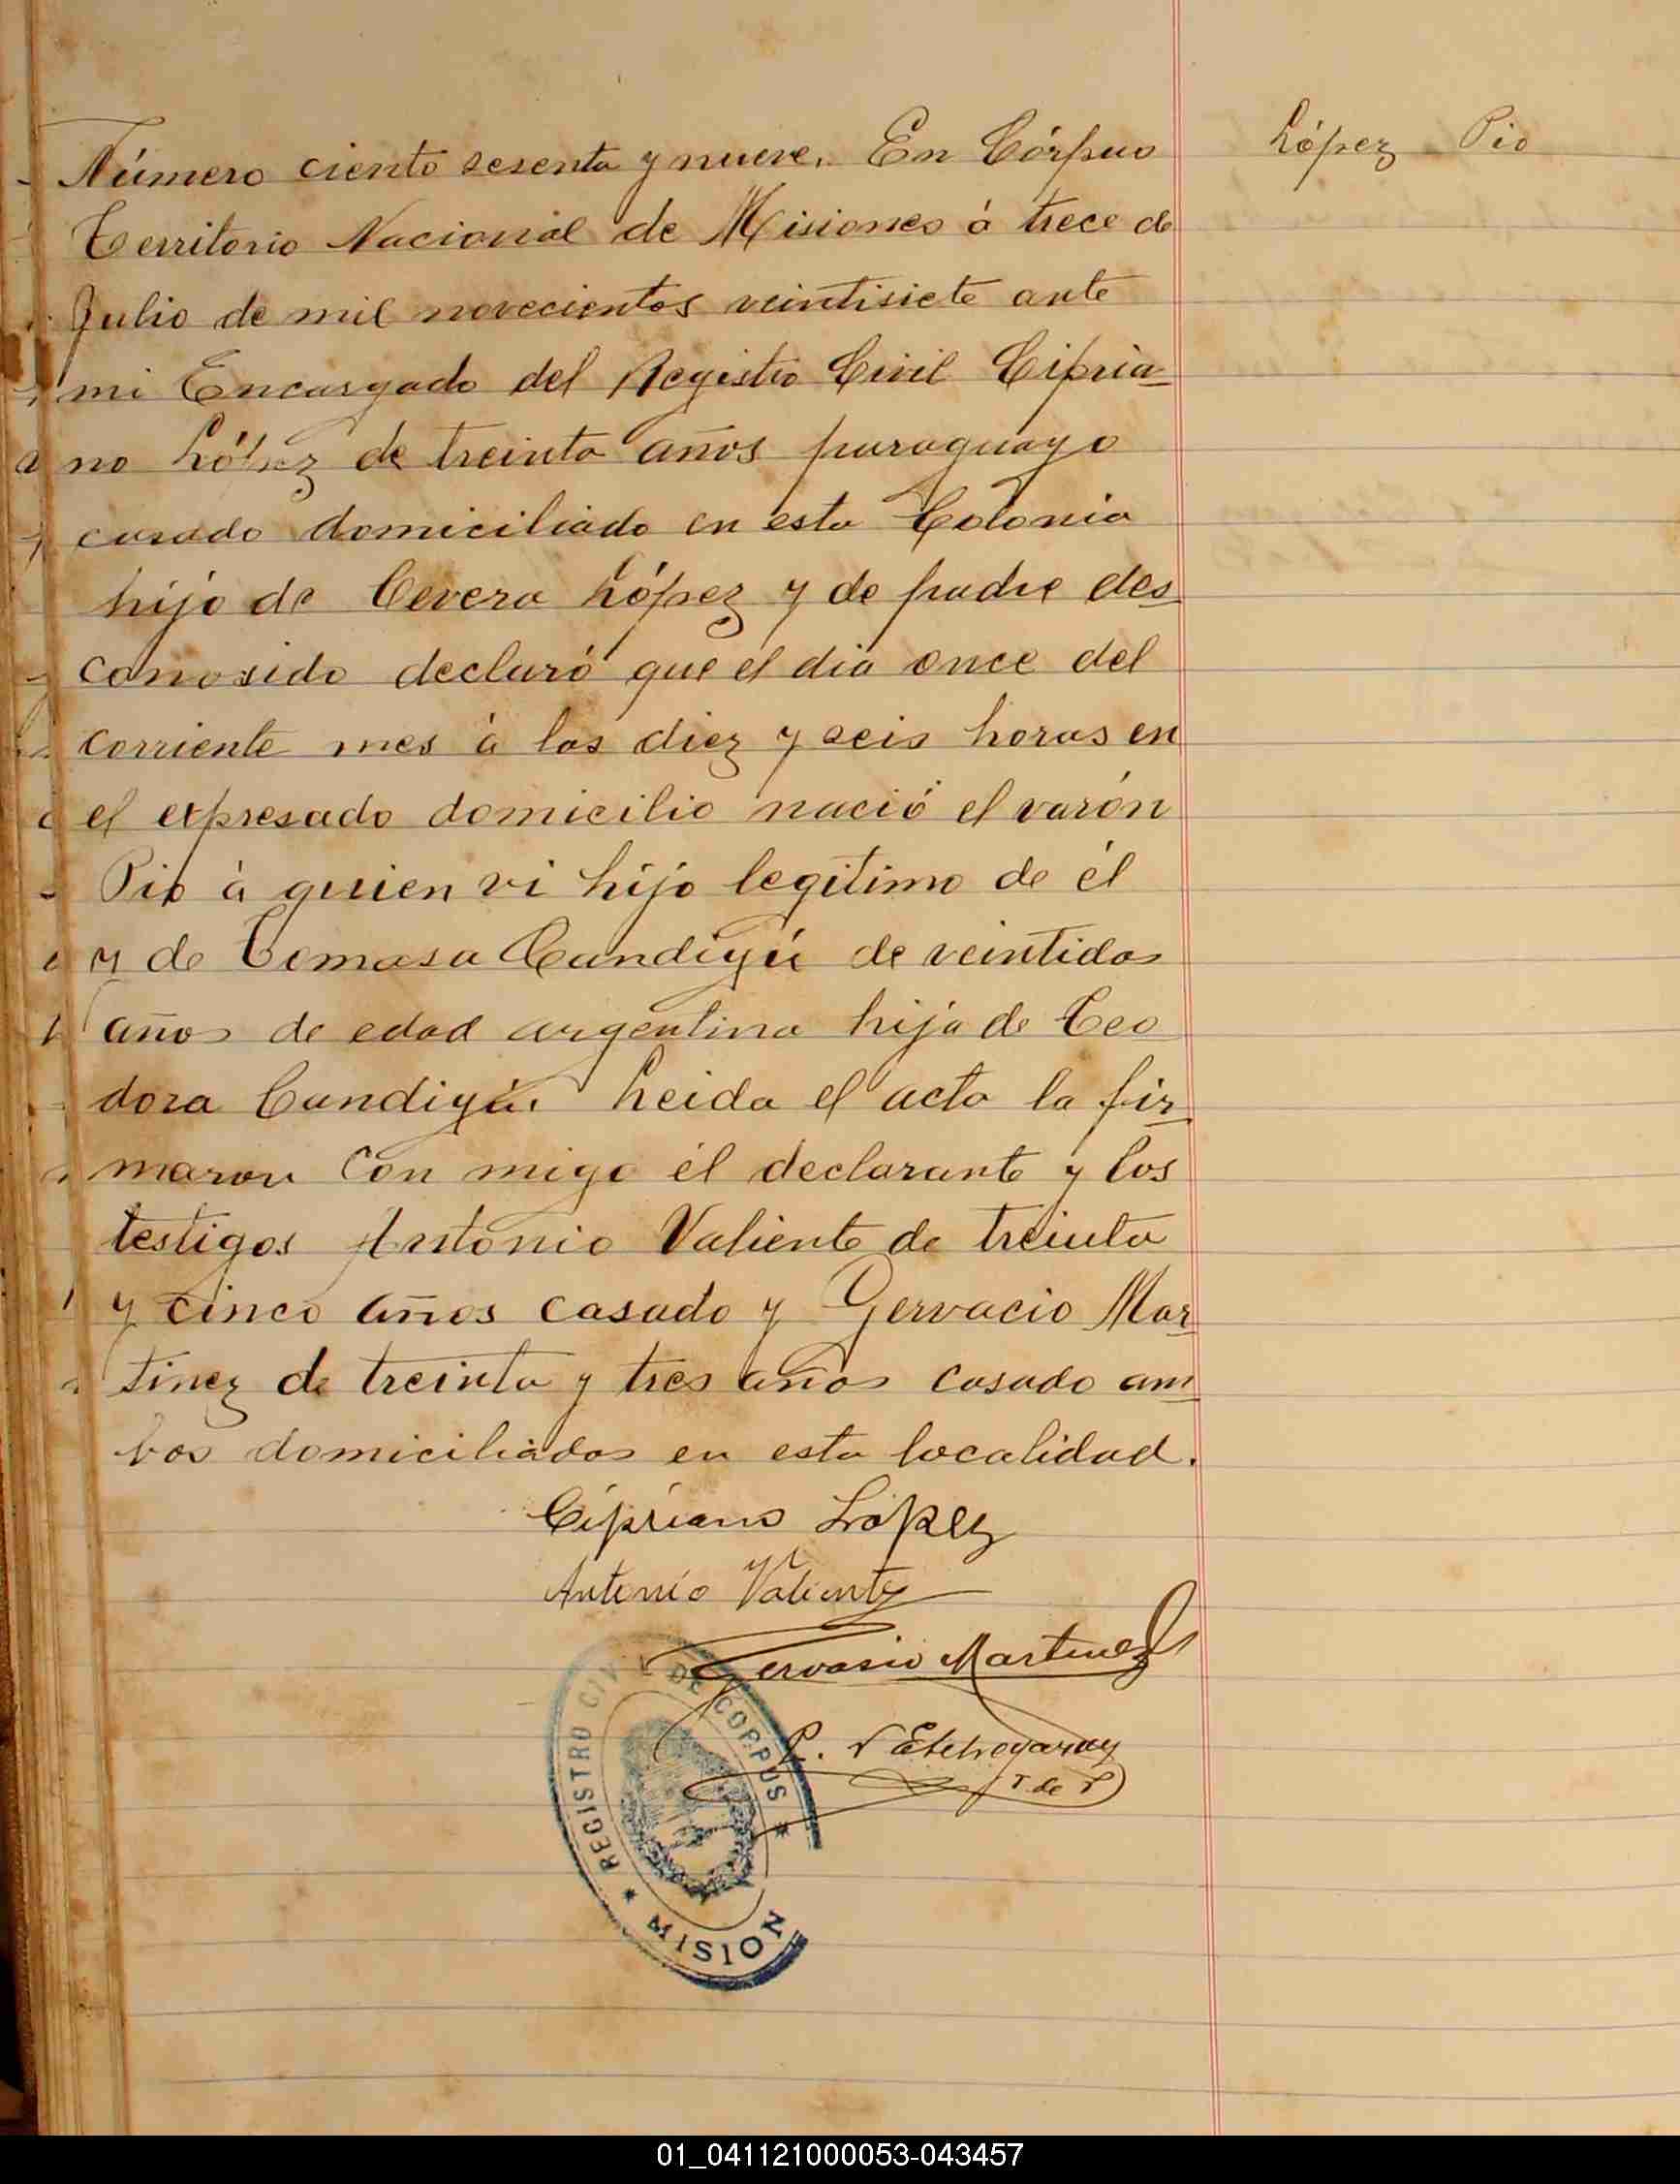 López Pio
Número ciento sesenta y nueve. En Córpus
Territorio Nacional de Misiones á trece de
Julio de mil novecientos veintisiete ante
mi Encargado del Registro Civil Cipria-
no López de treinta años paraguayo
casado domiciliado en esta Colonia
hijo de Cevera López y de padre des-
conosido declaró que el dia once del
corriente mes á las diez y seis horas en
el expresado domicilio nació el varón
Pio á quien vi hijo legitimo de él
y de Tomasa Candigú de veintidos
años de edad argentina hija de Teo
dora Candigú. Leida el acta la fir-
maron con migo el declarante y los
testigos Antonio Valiente de treinta
y cinco años casado y Gervacio Mar-
tinez de treinta y tres años casado am-
bos domiciliados en esta localidad.
Cipriano López
Antonio Valiente
Gervasio Martinez
P. V Etchegaray
J. de P
REGISTRO CIVIL DE CORPUS
MISION
01_041121000053-043457